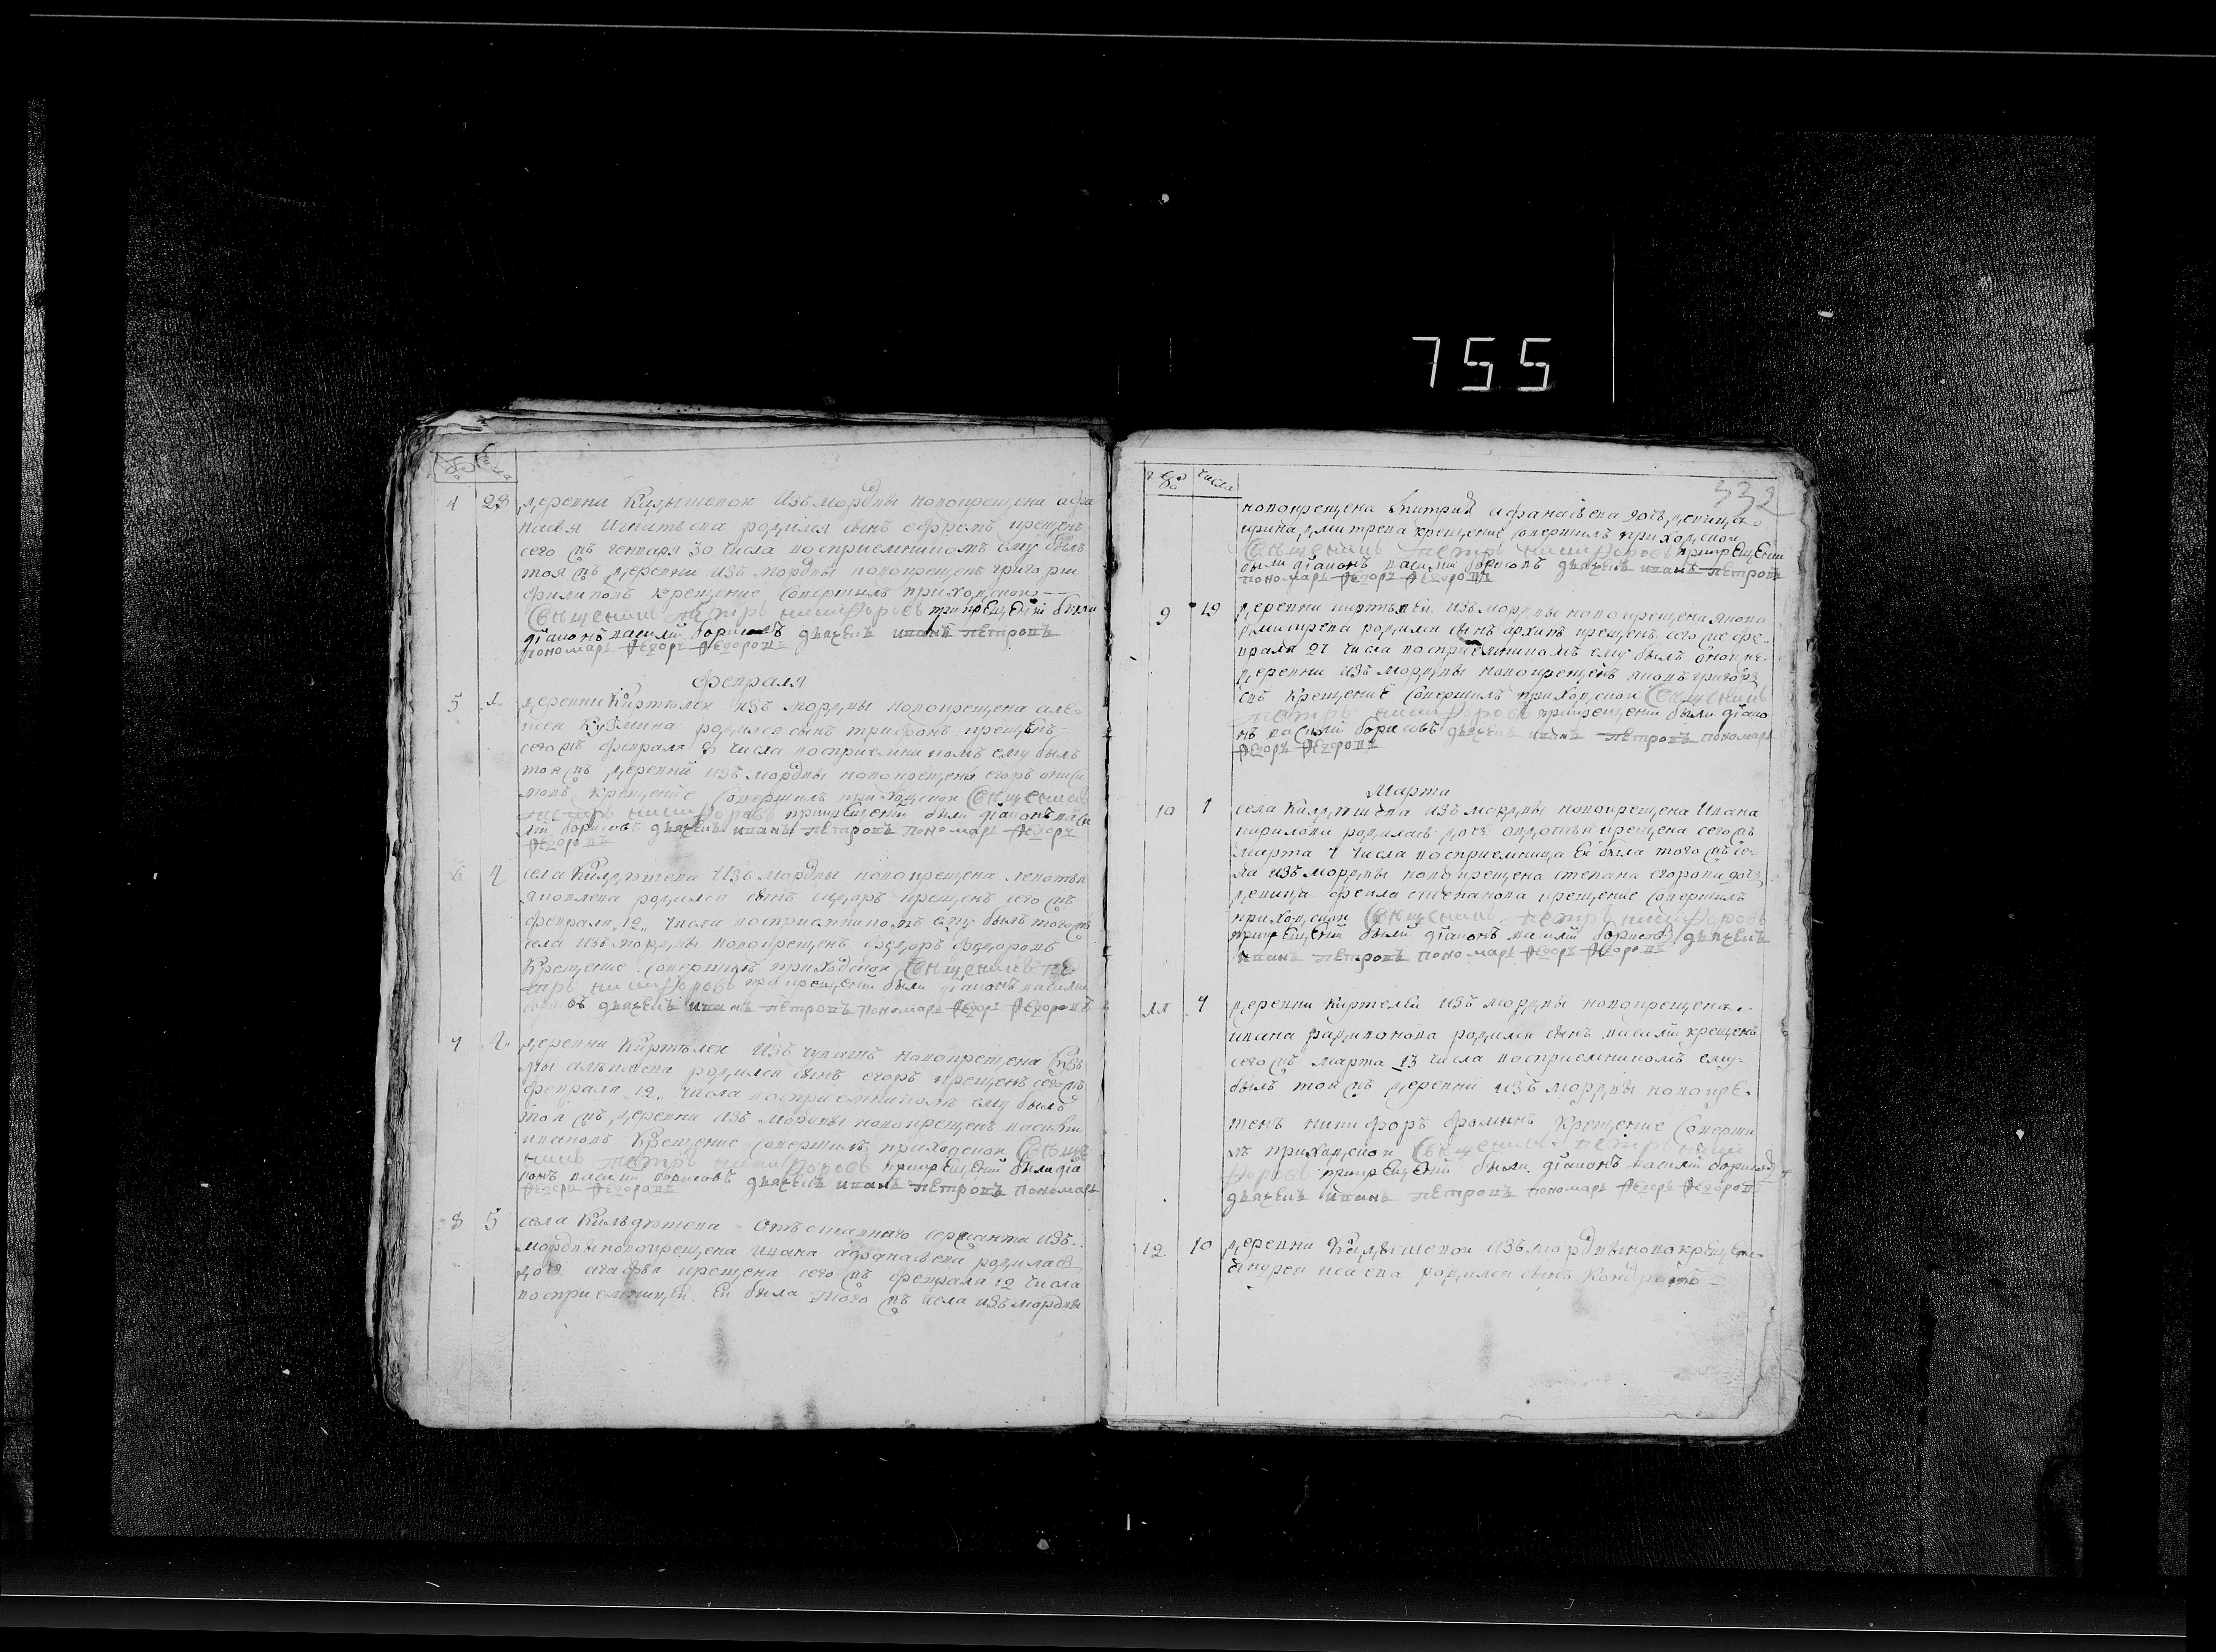 755
4 28 деревни Кулышевок изъ мордвы новокрещена афа
насья Игнатьева родился сынъ ефремъ крещенъ
сего мцъ генваря 30 числа восприемникомъ ему былъ
тоя мцъ деревни изъ мордвы новокрещенъ григореи
филиповъ крещение совершилъ приходскои
Священникъ Петръ Никифоровъ прикрещении были
дїаконъ василїй борисовъ дьячекъ иванъ петровъ
пономарь Федоръ Федоровъ
февраля
5 1 деревни Киртелеи изъ мордвы новокрещена але
ксея Кузмина родился сынъ трифонъ крещенъ
сего мцъ февраля 8 числа восприемникомъ ему былъ
тоя мцъ деревни изъ мордвы новокрещенъ егоръ
крещение совершилъ приходскои Священникъ
Петръ Никифоровъ прикрещении были дїаконъ васи
лїй борисовъ дьячекъ иванъ петровъ пономарь Федоръ
Федоровъ
6 4 села изъ мордвы новокрещена
яковлева родился сынъ сидоръ крещенъ сего мцъ
февраля 12 числа восприемникомъ ему былъ того мцъ
села изъ мордвы новокрещенъ федоръ федоровъ
Крещение совершилъ приходскои Священникъ Пе
тръ Никифоровъ прикрещении были дїаконъ василїй
борисовъ дьячекъ иванъ петровъ пономарь Федоръ Федоровъ
7 деревни Киртелеи изъ чувашъ новокрещена Кузь
мы алексеева родился сынъ егоръ крещенъ сего мцъ
февраля 12 числа восприемникомъ ему былъ
тоя мцъ деревни изъ мордвы новокрещенъ василеи
ивановъ Крещение совершилъ приходскои Священ
никъ Петръ Никифоровъ прикрещении были дїа
конъ василїй борисовъ дьячекъ иванъ петровъ пономарь
Федоръ Федоровъ
8 5 села отъставнаго сержанта изъ
мордвы новокрещена ивана афанасьева родилась
дочь агафья крещена сего мцъ февраля 12 числа
восприемницеи еи была того мцъ села изъ мордвы
числа
532
новокрещена дмитрия афанасьева дочь девица
ирина дмитрева крещение совершилъ приходскои
Священникъ Петръ Никифоровъ прикрещении
были дїаконъ василїй борисовъ дьячекъ иванъ петровъ
пономарь Федоръ Федоровъ
9 19 деревни киртелеи изъ мордвы новокрещена якова
дмитрева родился сынъ архипъ крещенъ сего мца фе
враля 27 числа восприемникомъ ему былъ
деревни изъ мордвы новокрещенъ григорь
евъ Крещение совершилъ приходскои Священникъ
Петръ Никифоровъ прикрещении были дїако
нъ василїй борисовъ дьячекъ иванъ петровъ пономарь
Федоръ Федоровъ
Марта
10 1 села изъ мордвы новокрещена Ивана
кирилова родилась дочь евдокия крещена сего мцъ
марта 7 числа восприемница еи была того мцъ се
ла изъ мордвы новокрещена степана егорова дочь
девица фекла степанова крещение совершилъ
приходскои Священникъ Петръ Никифоровъ
прикрещении были дїаконъ василїй борисовъ дьячекъ
иванъ петровъ пономарь Федоръ Федоровъ
11 7 деревни киртелеи изъ мордвы новокрещена
ивана родился сынъ василїй крещенъ
сего мцъ марта 13 числа восприемникомъ ему
былъ тои мцъ деревни изъ мордвы новокре
щенъ никифоръ фоминъ Крещение соверши
лъ приходскои Священникъ Петръ Ники
форовъ прикрещении были дїаконъ василїй борисовъ
дьячекъ иванъ петровъ пономарь Федоръ Федоровъ
12 10 деревни изъ мордвы новокрещена
андрея исаева родился сынъ Кондратъ